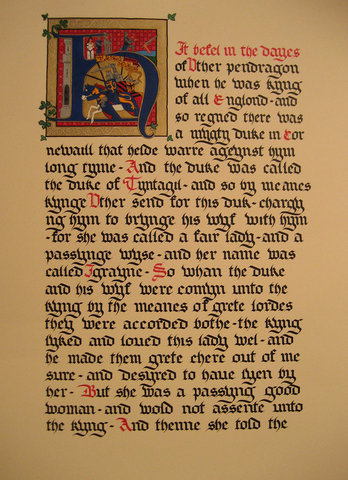 It befel in the dayes
of Uther pendragon
when he was kyng
of all Englond - and
so regned there was
a myʒty duke in Cor
newaill that helde warre ageynst hym
long tyme - And the duke was called
the duke of Tyntagil - and so by meanes
kynge Uther send for this duk - chargy
ng hym to brynge his wyf with hym
- for she was called a fair lady - and a
passynge wyse - and her name was
called Igrayne - So whan the duke
and his wyf were comyn unto the
kyng by the meanes of grete lordes
they were accorded bothe - the kyng
lyked and loued this lady wel - and
he made them grete chere out of me
sure - and desyred to haue lyen by
her - But she was a passyng good
woman - and wold not assente unto
the kyng - And thenne she told the